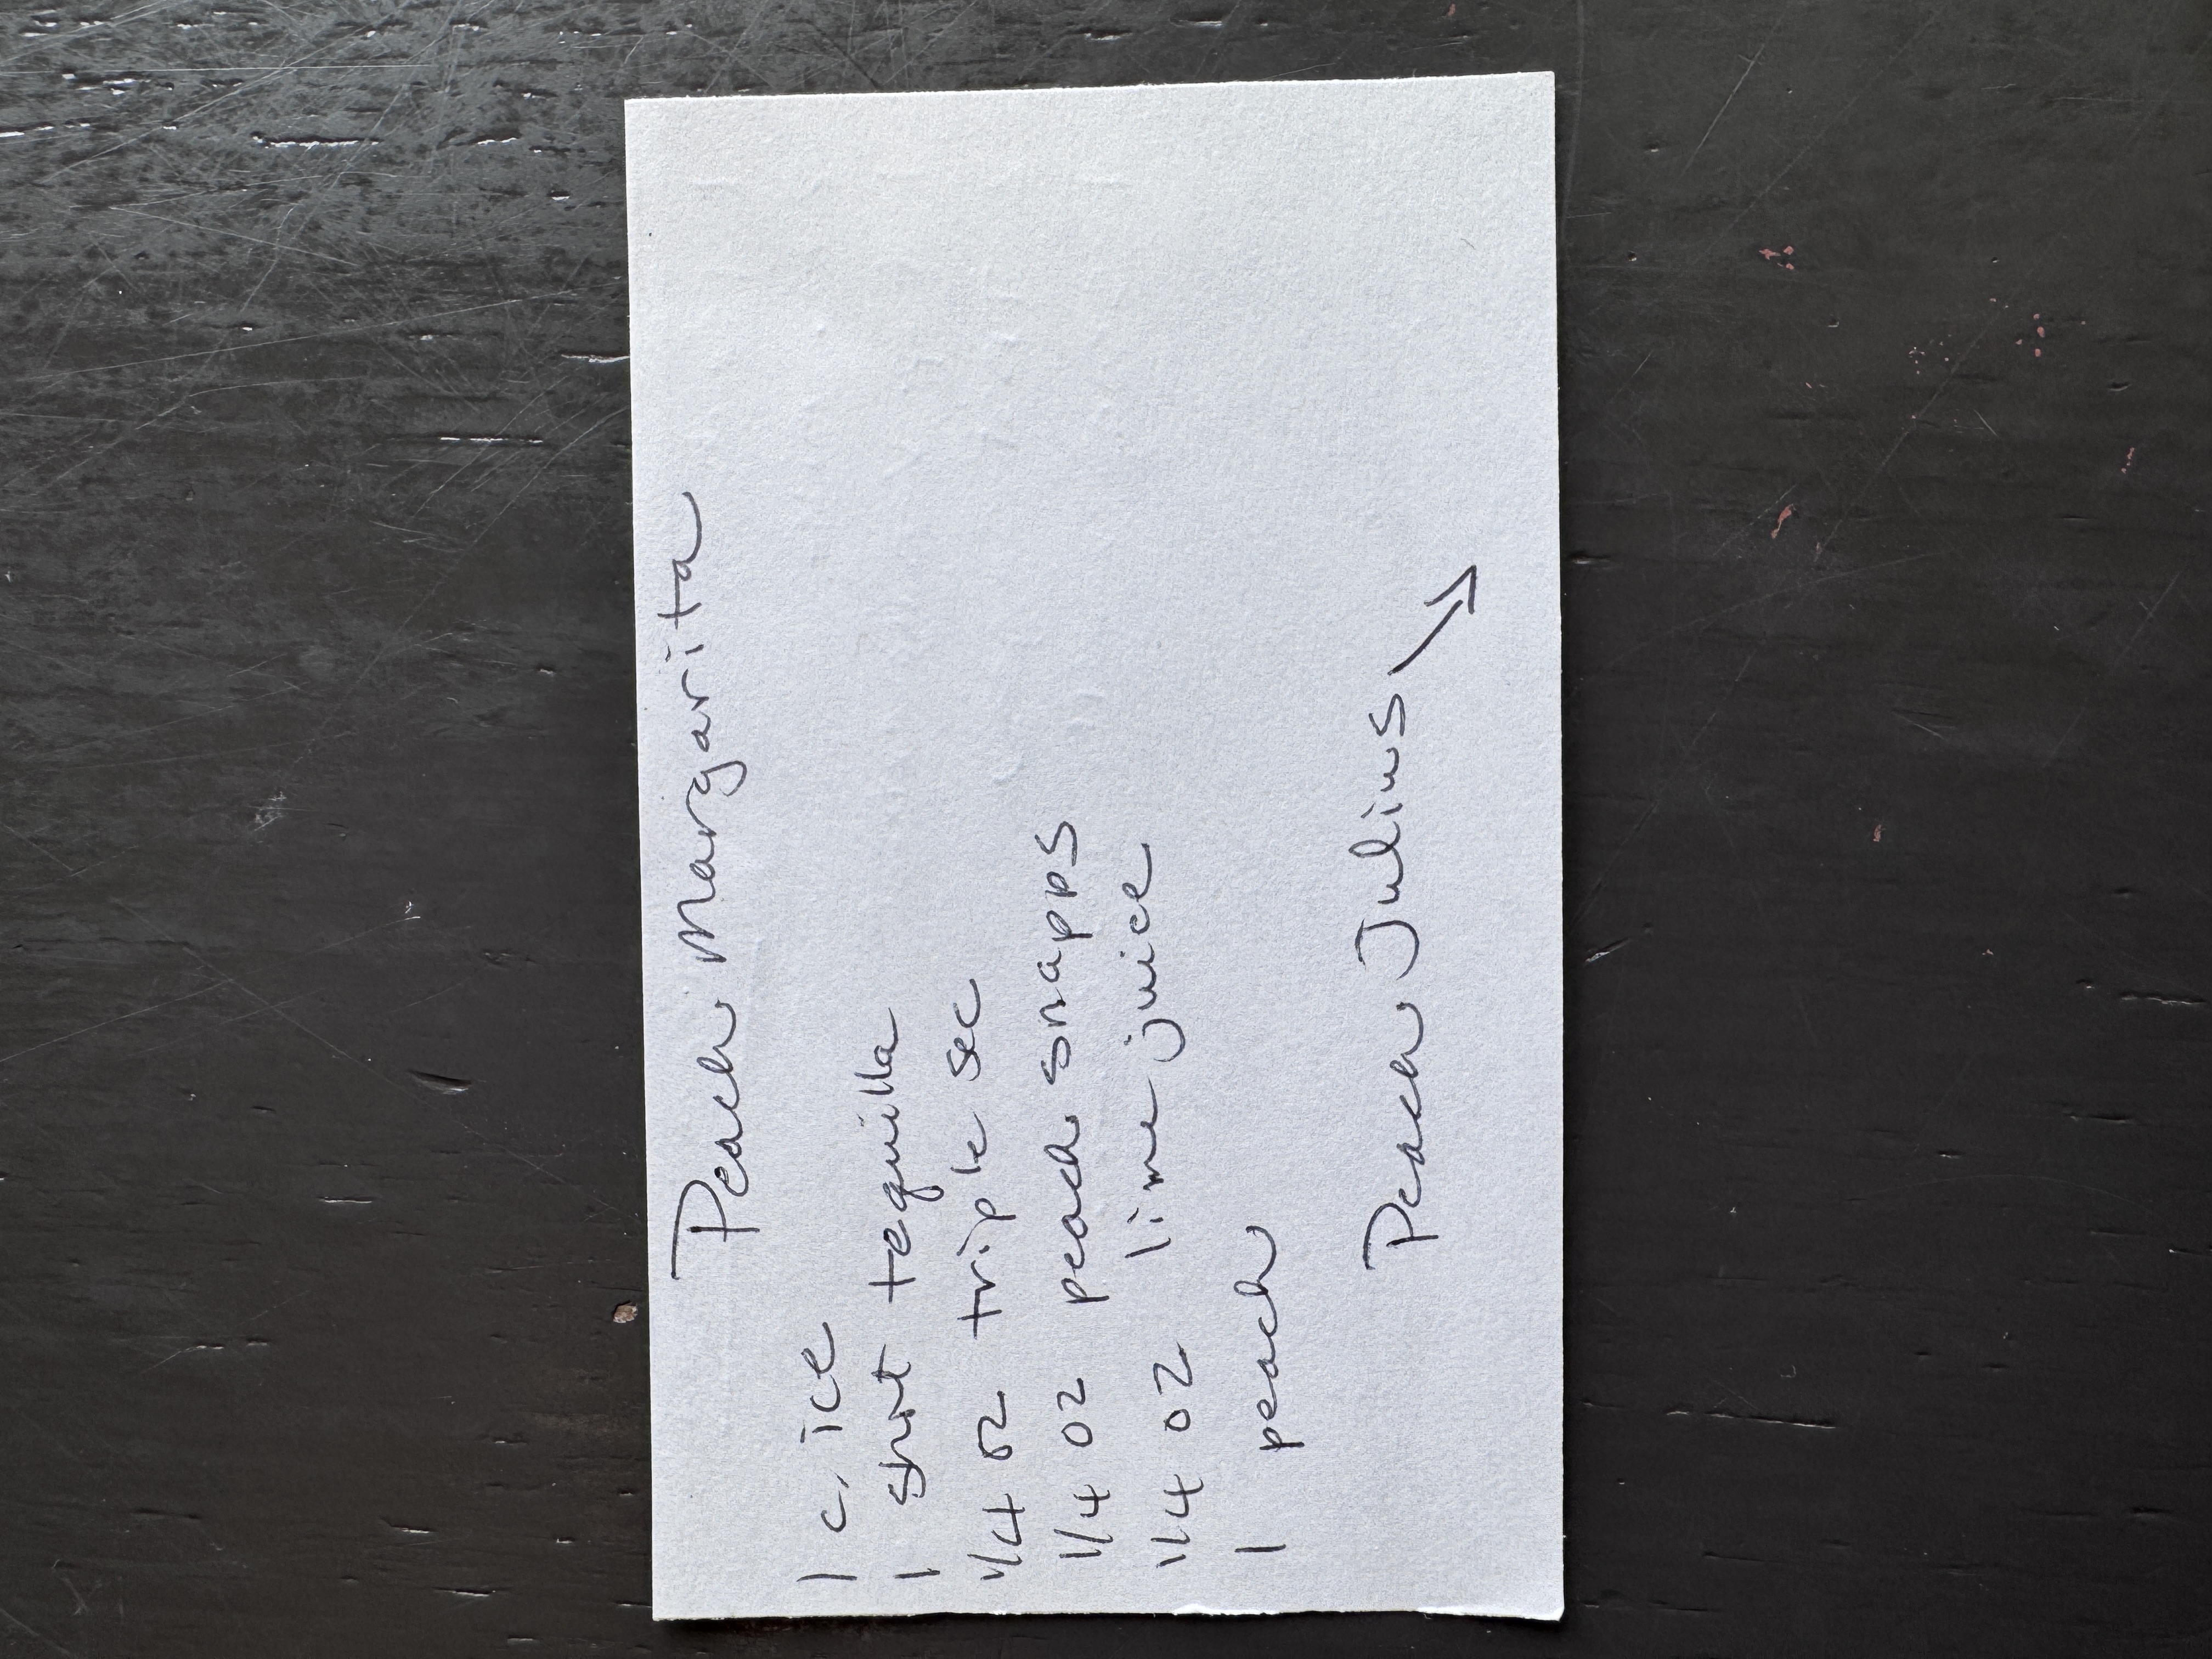 Peach Margarita
1 c. ice
1 shot tequilla
1/4 oz triple sec
1/4 oz peach snapps
1/4 oz lime juice
1 peach
Peach Julius →